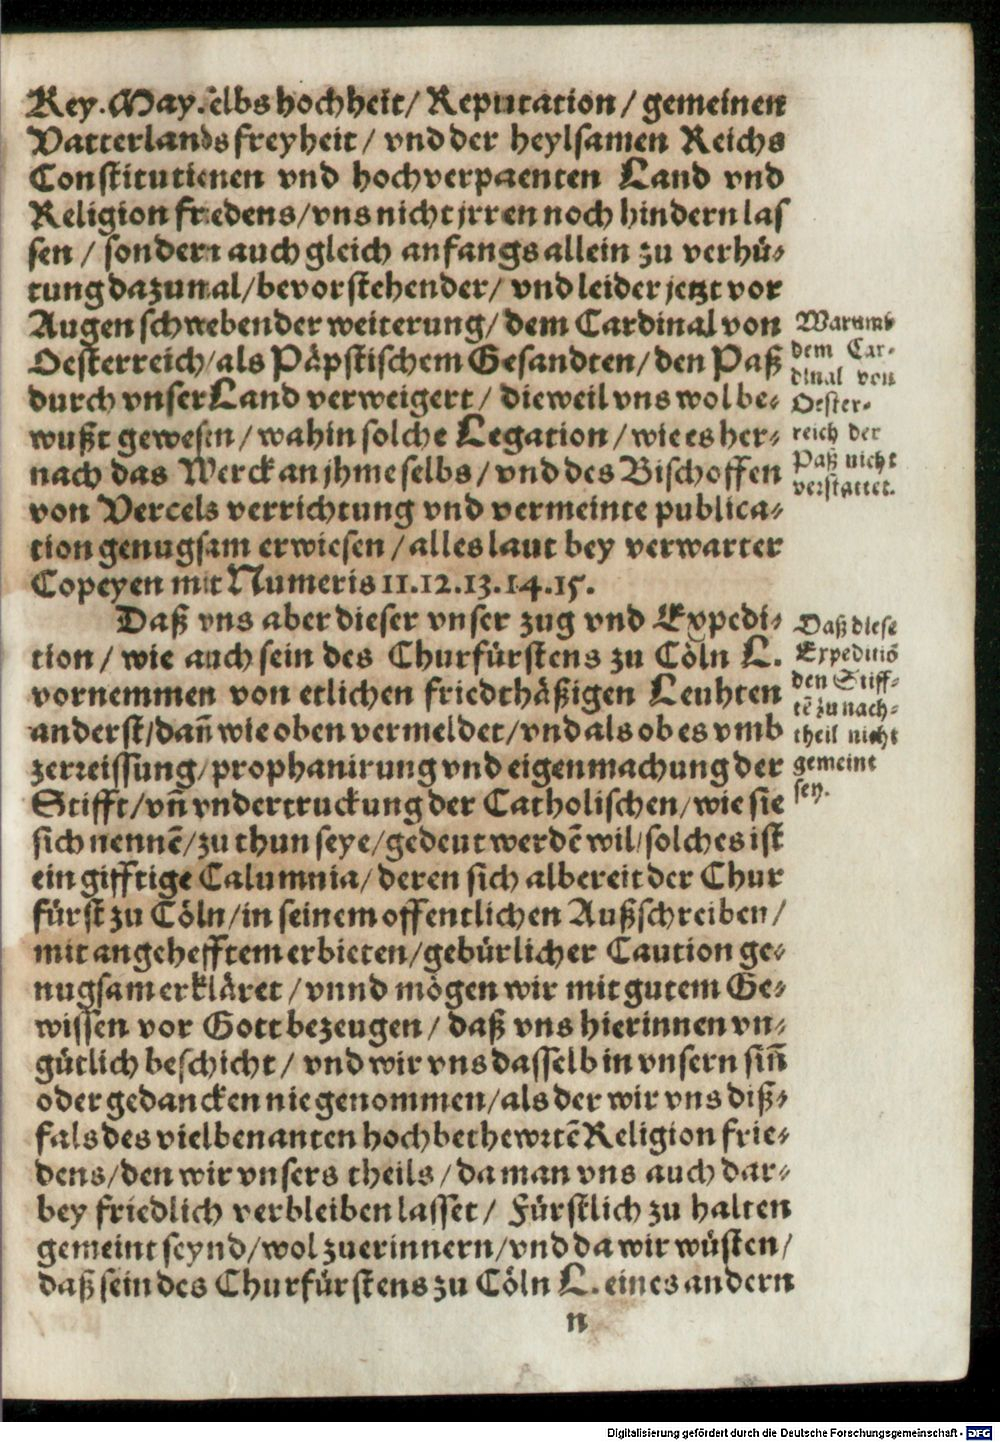 Key. May. selbs hochheit/ Reputation/ gemeinen
Vatterlands freyheit/ vnd der heylsamen Reichs
Constitutionen vnd hochverpaenten Land vnd
Religion friedens/ vns nicht jrren noch hindern las
sen/ sondern auch gleich anfangs allein zu verhü-
tung dazumal/ bevorstehender/ vnd leider jetzt vor
Augen schwebender weiterung/ dem Cardinal von
Oesterreich/ als Päpstischem Gesandten/ den Paß
durch vnser Land verweigert/ dieweil vns wol be-
wußt gewesen/ wahin solche Legation/ wie es her-
nach das Werck an jhme selbs/ vnd des Bischoffen
von Vercels verrichtung vnd vermeinte publica-
tion genugsam erwiesen/ alles laut bey verwarter
Copeyen mit Numeris 11. 12. 13. 14. 15.
Warumb
dem Car-
dinal von
Oester-
reich der
Paß nicht
verstattet.
Daß vns aber dieser vnser zug vnd Expedi-
tion/ wie auch sein des Churfürstens zu Cöln L.
vornemmen von etlichen friedthäßigen Leuhten
anderst/ dañ wie oben vermeldet/ vnd als ob es vmb
zerreissung/ prophanirung vnd eigenmachung der
Stifft/ vñ vndertruckung der Catholischen/ wie sie
sich nennẽ/ zu thun seye/ gedeut werdẽ wil/ solches ist
ein gifftige Calumnia/ deren sich albereit der Chur
fürst zu Cöln/ in seinem offentlichen Außschreiben/
mit angehefftem erbieten/ gebürlicher Caution ge-
nugsam erkläret/ vnnd mögen wir mit gutem Ge-
wissen vor Gott bezeugen/ daß vns hierinnen vn-
gütlich beschicht/ vnd wir vns dasselb in vnsern siñ
oder gedancken nie genommen/ als der wir vns diß-
fals des vielbenanten hochbethewrtẽ Religion frie-
dens/ den wir vnsers theils/ da man vns auch dar-
bey friedlich verbleiben lasset/ Fürstlich zu halten
gemeint seynd/ wol zuerinnern/ vnd da wir wüsten/
daß sein des Churfürstens zu Cöln L. eines andern
n
Daß diese
Expeditiõ
den Stiff-
tẽ zu nach-
theil nicht
gemeint
sey.
Digitalisierung gefördert durch die Deutsche Forschungsgemeinschaft - DFG